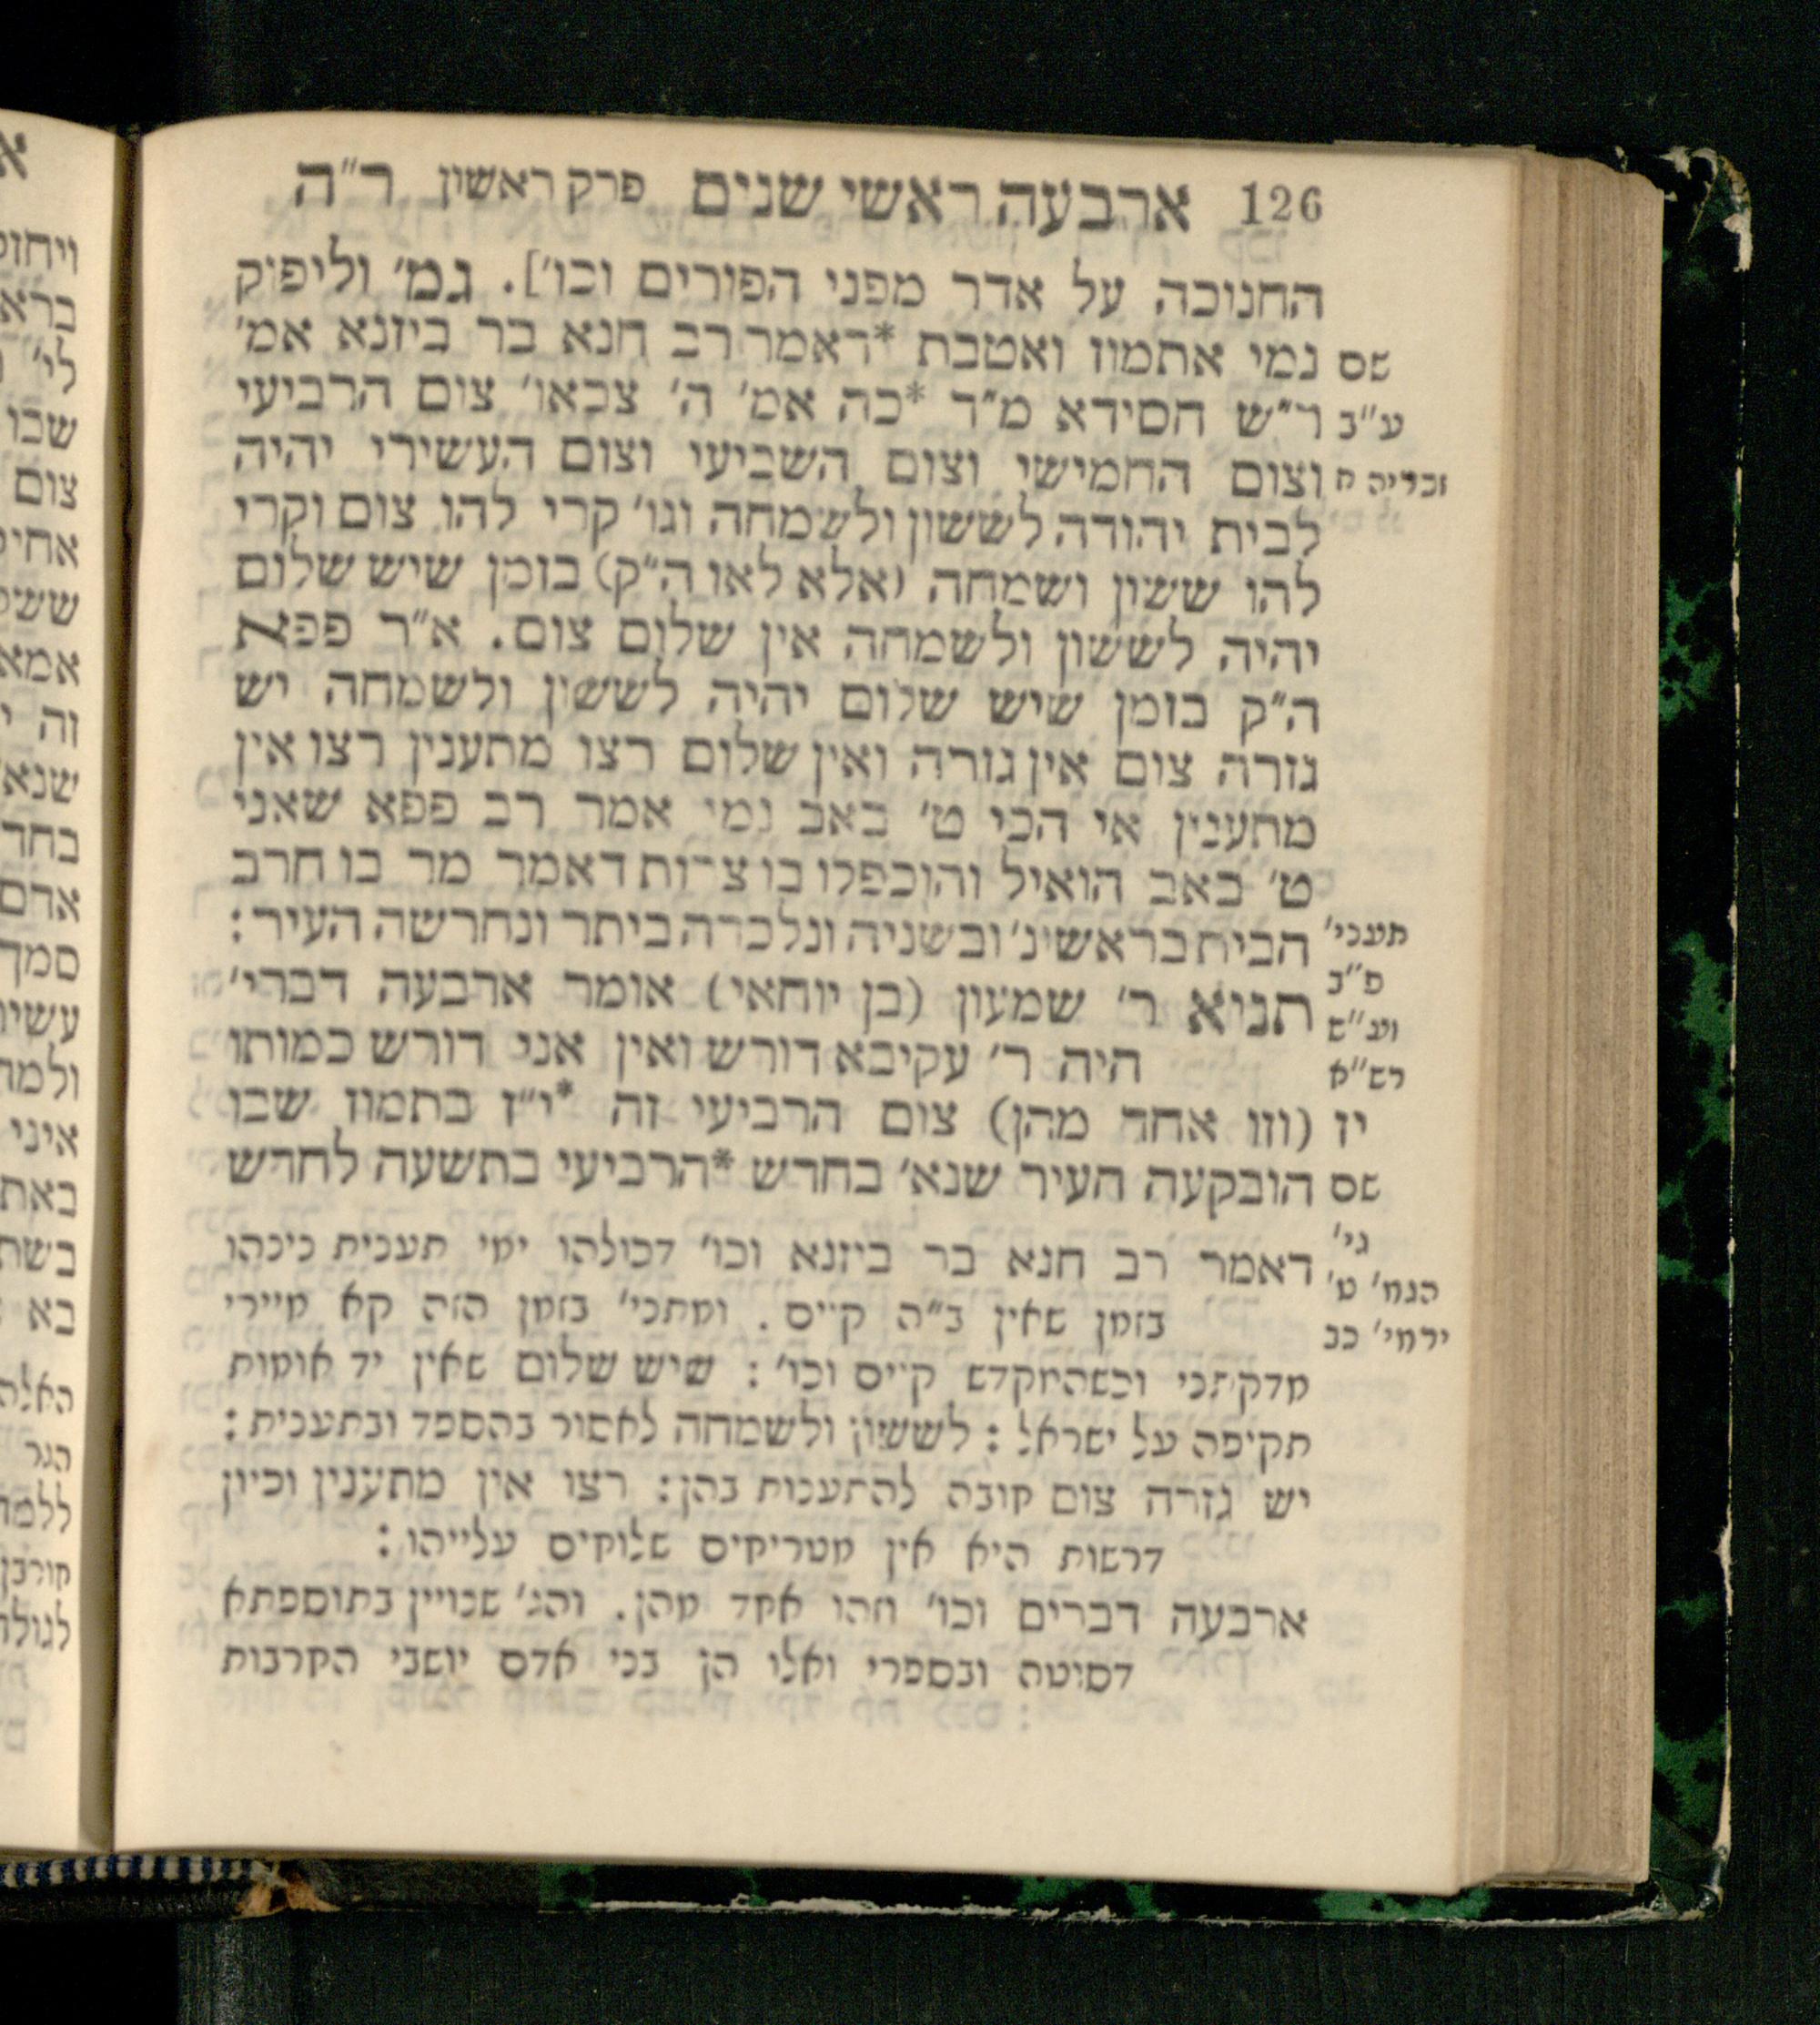 126 ארבעה ראשי שנים פרק ראשון ר״ה
החנוכה על אדר מפני הפורים וכו׳]. גמ׳ וליפוק
שם נמי אתמוז ואטבת *דאמר רב חנא בר ביזנא אמ׳
ע״ב ר״ש חסידא מ״ד *כה אמ׳ ה׳ צבאו׳ צום הרביעי
זכריה ח וצום החמישי וצום השביעי וצום העשירי יהיה
לבית יהודה לששון ולשמחה וגו׳ קרי להו צום וקרי
להו ששון ושמחה (אלא לאו ה״ק) בזמן שיש שלום
יהיה לששון ולשמחה אין שלום צום. א״ר פפא
ה״ק בזמן שיש שלום יהיה לששון ולשמחה יש
גזרה צום אין גזרה ואין שלום רצו מתענין רצו אין
מתענין אי הכי ט׳ באב נמי אמר רב פפא שאני
ט׳ באב הואיל והוכפלו בו צרות דאמר מר בו חרב
תעני׳ הבית בראשונ׳ ובשניה ונלכדה ביתר ונחרשה העיר:
פ״ב
תניא ר׳ שמעון (בן יוחאי) אומר ארבעה דברי׳
וע״ש
היה ר׳ עקיבא דורש ואין אני דורש כמותו
רש״א
יז (וזו אחד מהן) צום הרביעי זה *י״ז בתמוז שבו
שם הובקעה העיר שנא׳ בחדש *הרביעי בתשעה לחדש
גי׳
דאמר רב חנא בר ביזנא וכו׳ דכולהו ימי תענית נינהו
הגמ׳ ט׳
בזמן שאין ב״ה קיים. ומתני׳ בזמן הזה קא מיירי
ירמי׳ נב
מדקתני וכשהמקדש קיים וכו׳: שיש שלום שאין יד אומות
תקיפה על ישראל: לששון ולשמחה לאסור בהספד ובתענית:
יש גזרה צום חובה להתענות בהן: רצו אין מתענין וכיון
דרשות היא אין מטריחים שלוחים עלייהו:
ארבעה דברים וכו׳ וזהו אחד מהן. והג׳ שנויין בתוספתא
דסוטה ובספרי ואלו הן בני אדם יושבי החרבות